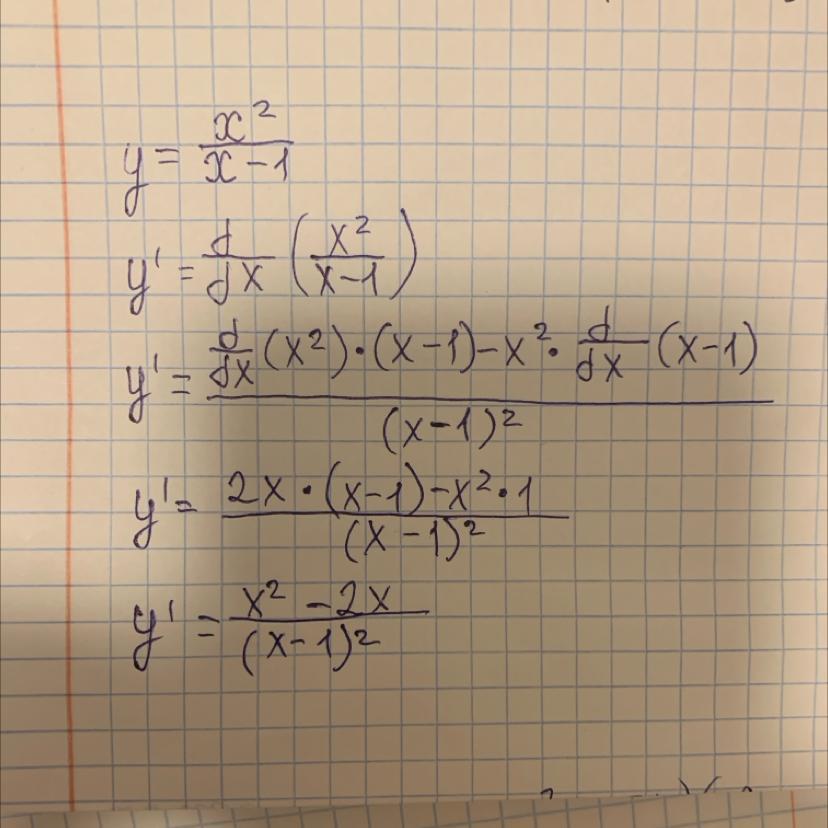 y = x²/(x-1)
y' = d/dx (x²/(x-1))
y' = (d/dx (x²)·(x-1)-x²·d/dx (x-1))/(x-1)²
y' = (2x·(x-1)-x²·1)/(x-1)²
y' = (x²-2x)/(x-1)²